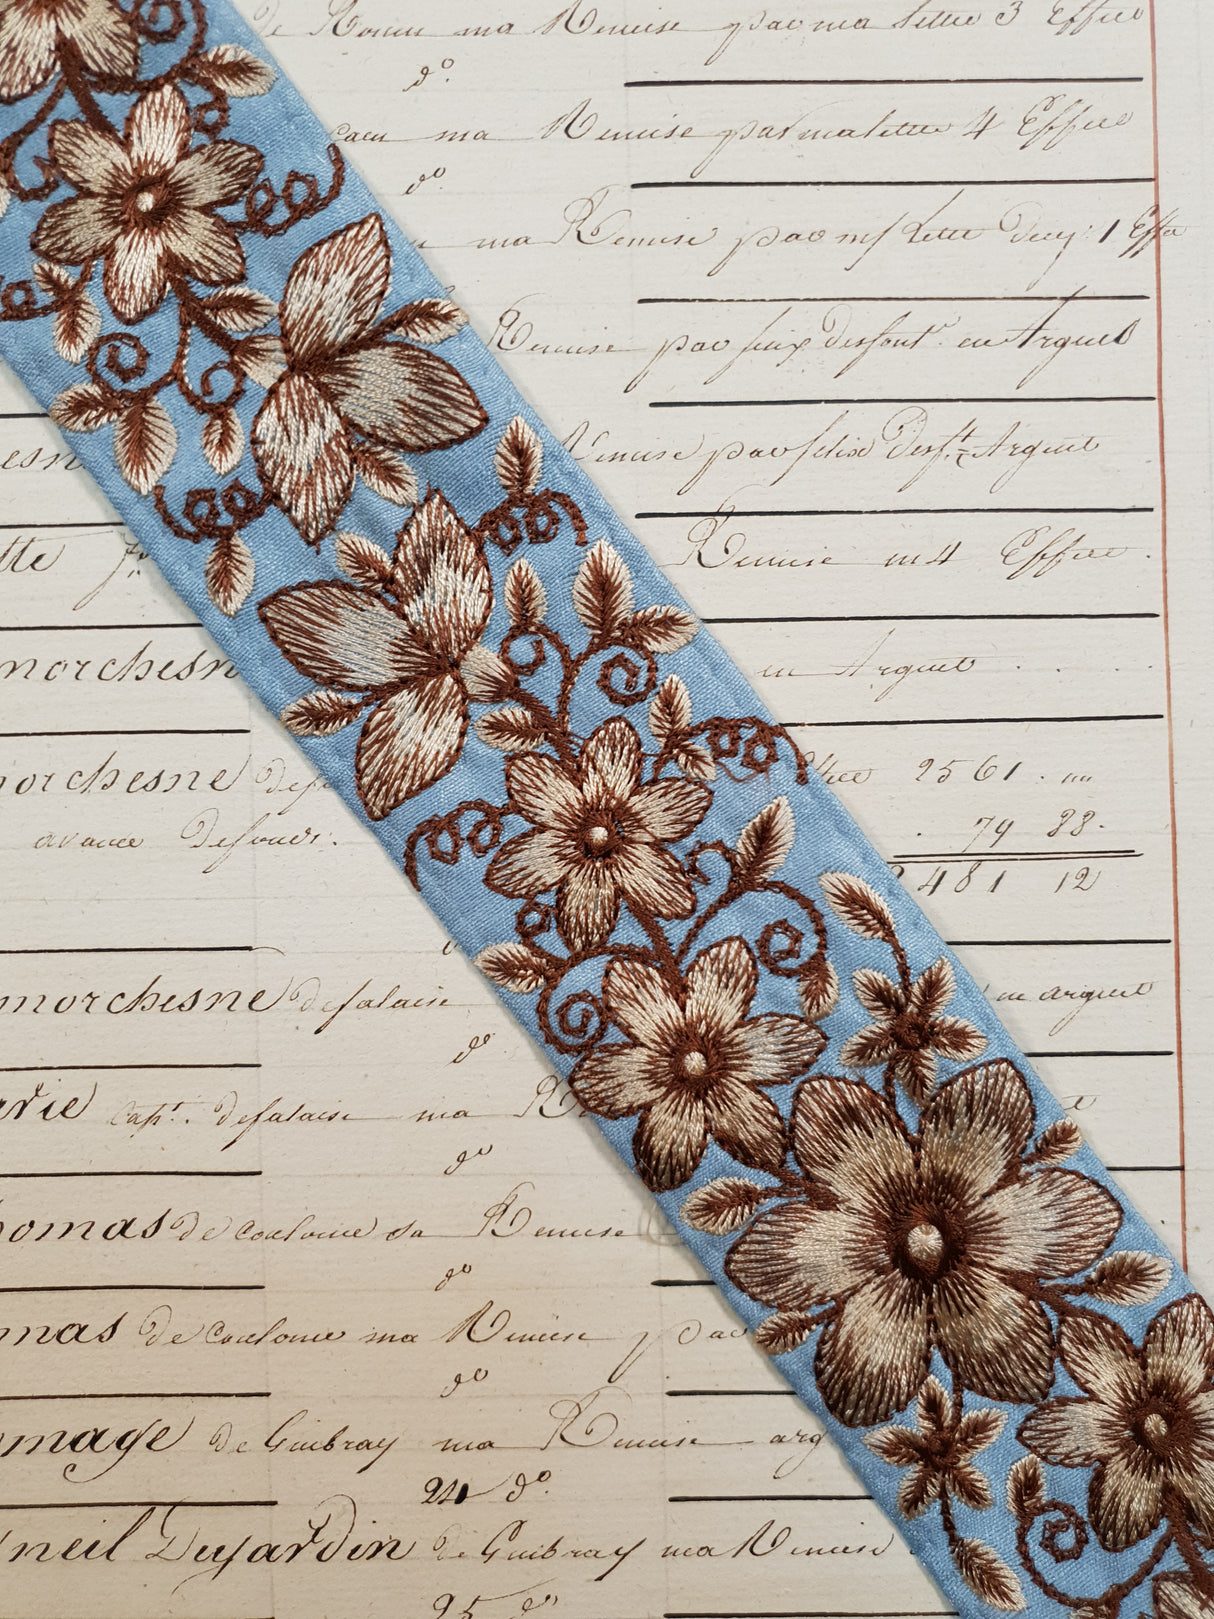 de Rouen ma Remise par ma lettre 3 Effets
do.
Caen ma Remise par ma lettre 4 Effets
do.
ma Remise par m/ Lettre 1 Effet
Remise par feux desfont. en Argent
esn Remise par felix desft. Argent
tte Remise en 4 Effets.
morchesn en Argent
morchesne 2561.
avance 79 88.
2481 12
morchesne defalaise en argent
do
arie Capt. defalaise ma R
do
homas de Coulonce sa Remise
do
mas de Coulonce ma Remise par
do
omage de Guibray ma Remise arg
24 do.
neil Dujardin de Guibray ma Remise
25 do.